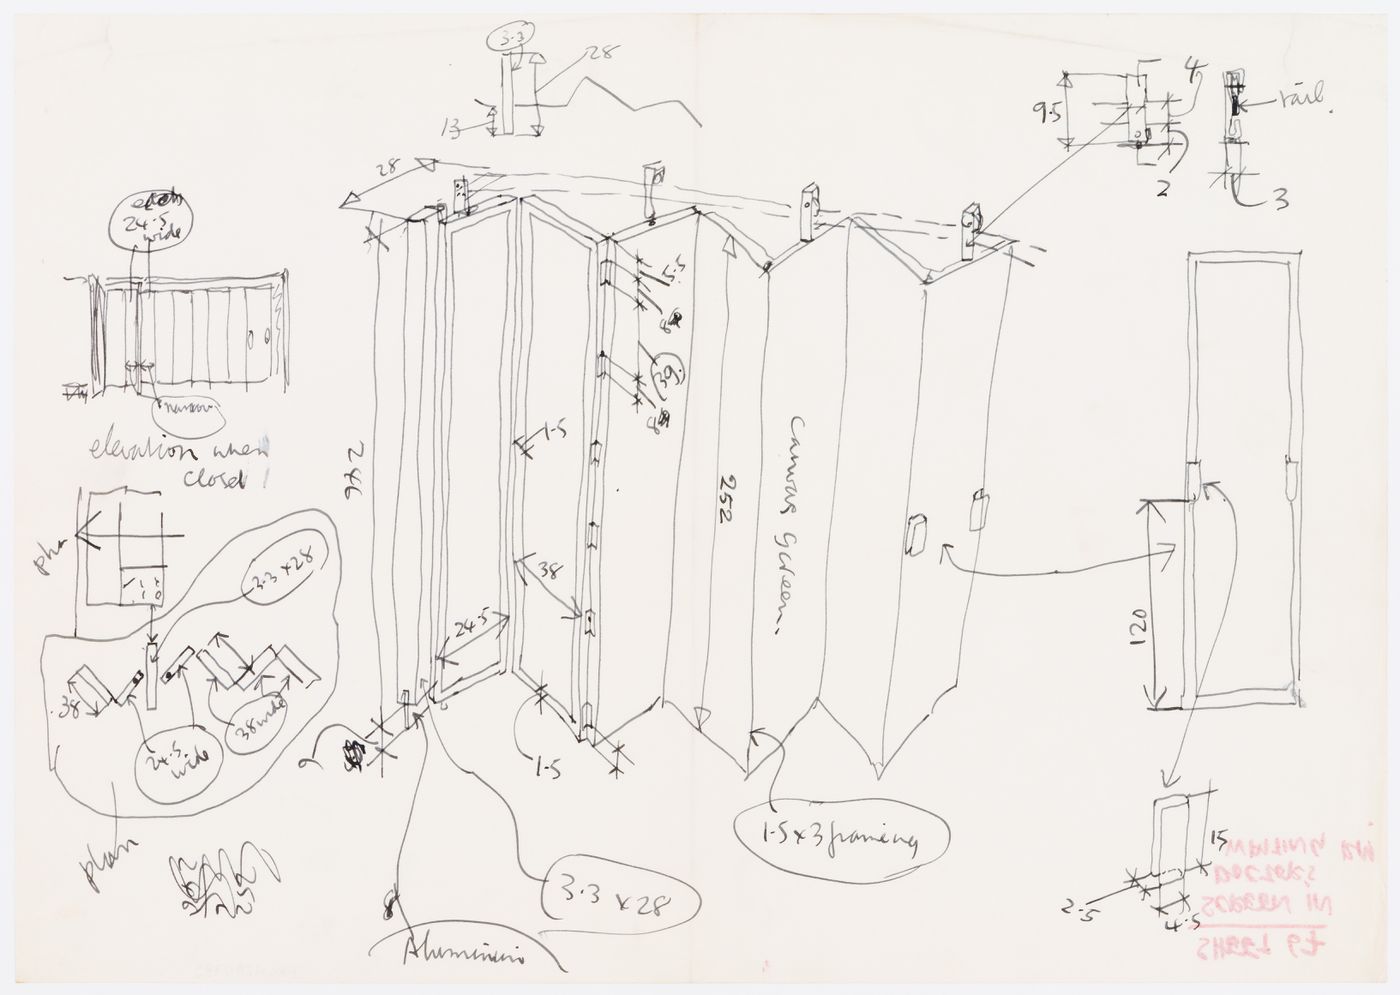 3.3
28
13
4
9.5
rail.
2
3
28
24.5
wide
5.5
8
39
8
narrow
elevation when
closed
1.5
246
252
Canvas Screen.
plan
3.3 x 28
38
24.5
120
38
38 wide
24.5
wide
2
1.5
1.5 x 3 framing
plan
252
3.3 x 28
8
Aluminium
15
2.5
4.5
SCREEN IN
SHEET 67